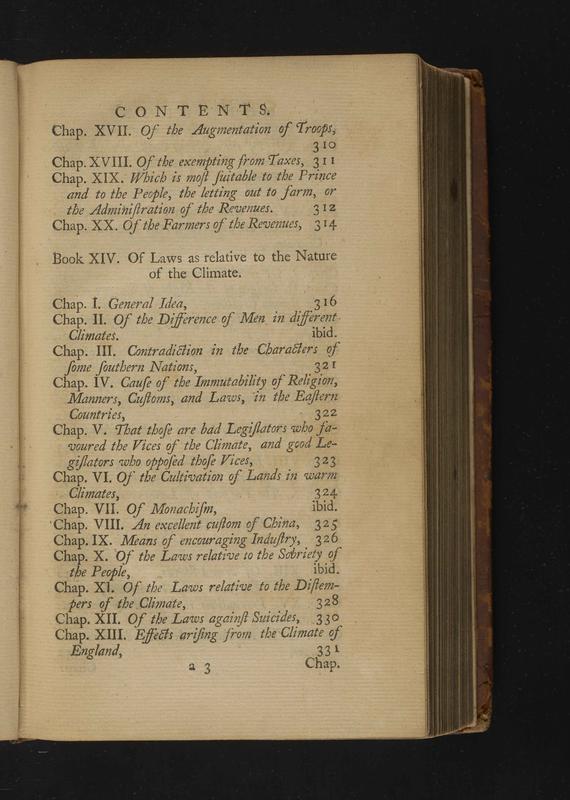 CONTENTS.
Chap. XVII. Of the Augmentation of Troops,
310
Chap. XVIII. Of the exempting from Taxes, 311
Chap. XIX. Which is moſt ſuitable to the Prince
and to the People, the letting out to farm, or
the Adminiſtration of the Revenues. 312
Chap. XX. Of the Farmers of the Revenues, 314
Book XIV. Of Laws as relative to the Nature
of the Climate.
Chap. I. General Idea, 316
Chap. II. Of the Difference of Men in different
Climates. ibid.
Chap. III. Contradiction in the Characters of
ſome ſouthern Nations, 321
Chap. IV. Cauſe of the Immutability of Religion,
Manners, Cuſtoms, and Laws, in the Eaſtern
Countries, 322
Chap. V. That thoſe are bad Legiſlators who fa-
voured the Vices of the Climate, and good Le-
giſlators who oppoſed thoſe Vices, 323
Chap. VI. Of the Cultivation of Lands in warm
Climates, 324
Chap. VII. Of Monachiſm, ibid.
Chap. VIII. An excellent cuſtom of China, 325
Chap. IX. Means of encouraging Induſtry, 326
Chap. X. Of the Laws relative to the Sobriety of
the People, ibid.
Chap. XI. Of the Laws relative to the Diſtem-
pers of the Climate, 328
Chap. XII. Of the Laws againſt Suicides, 330
Chap. XIII. Effects ariſing from the Climate of
England, 331
a 3 Chap.